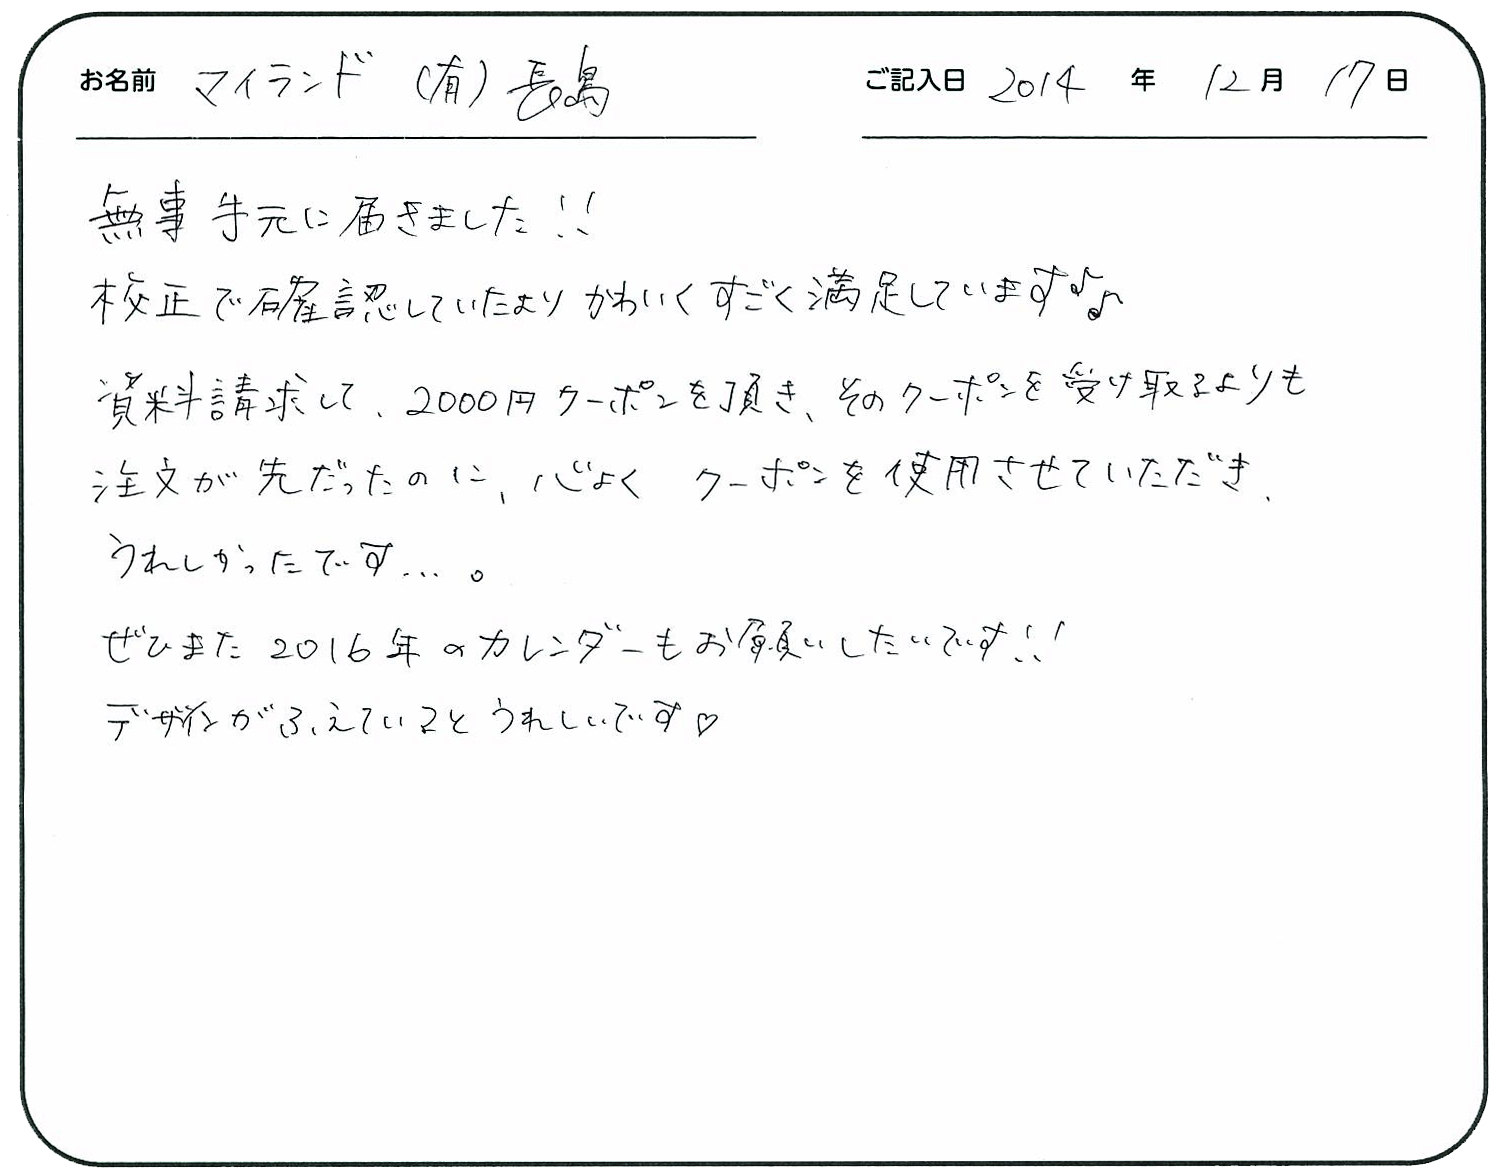 お名前 マイランド (有) 長島
ご記入日 2014 年 12 月 17 日
無事 手元に届きました!!
校正で確認していたよりかわいくすごく満足しています♪♪
資料請求して、2000円クーポンを頂き、そのクーポンを受け取るよりも
注文が先だったのに、心よく クーポンを使用させていただき、
うれしかったです…。
ぜひまた2016年のカレンダーもお願いしたいです!!
デザインがふえているとうれしいです♡